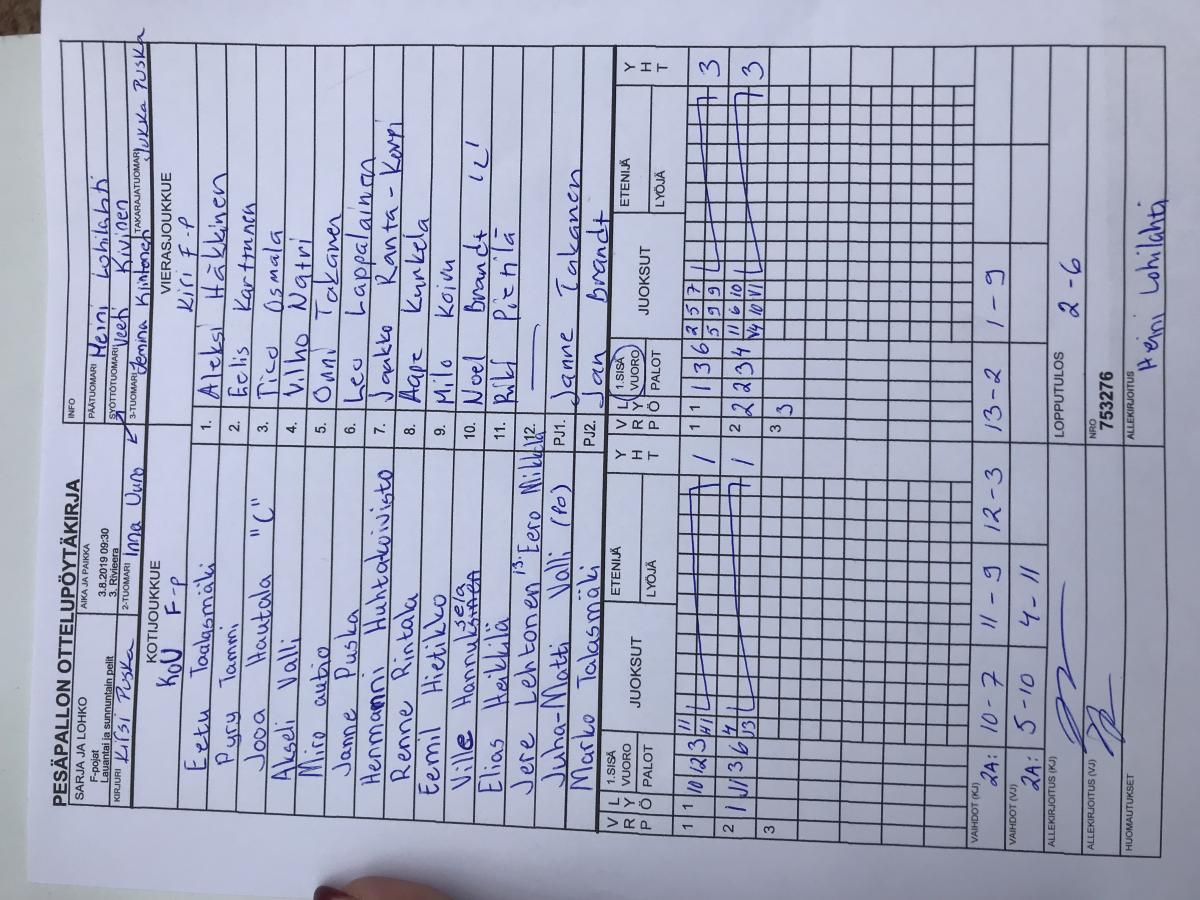 PESÄPALLON OTTELUPÖYTÄKIRJA
SARJA JA LOHKO
F-pojat
Lauantai ja sunnuntain pelit
AIKA JA PAIKKA
3.8.2019 09:30
3. Riviera
INFO
PÄÄTUOMARI Heini Lohilahti
SYÖTTÖTUOMARI Veeti Kivinen
KIRJURI Kirsi Puska
2-TUOMARI Inna Uuro
3-TUOMARI Jemina Klintonen
TAKARAJATUOMARI Jukka Puska
KOTIJOUKKUE
KoU F-P
VIERASJOUKKUE
Kiri F-P
Eetu Taalasmäki 1. Aleksi Häkkinen
Pyry Tammi 2. Eelis Kartmnen
Jooa Hautala "C" 3. Tico Osmala
Akseli Valli 4. Vilho Natri
Miro autio 5. Onni Takanen
Janne Puska 6. Leo Lappalainen
Henmanni Huhtakoivisto 7. Jaakko Ranta-Korpi
Renne Rintala 8. Aape Kunkela
Eemil Hietikko 9. Milo Koivu
Ville 10. Noel Brandt "C"
Elias Heikkilä 11. Riki Pietilä
Jere Lehtonen 13. Eero Mikkola 12.
Juha-Matti Valli (PO) PJ1. Janne Takanen
Marko Talasmäki PJ2. Jan Brandt
V R P L Y Ö 1.SISÄ VUORO PALOT JUOKSUT ETENIJÄ LYÖJÄ Y H T V R P L Y Ö 1.SISÄ VUORO PALOT JUOKSUT ETENIJÄ LYÖJÄ Y H T
1 1 10 12 3 11 1 1 1 1 3 6 2 5 7 3
H1 5 9 9
2 1 J1 3 6 4 1 2 2 2 3 4 11 6 10 3
J3 V4 10 V1
3 3 3
VAIHDOT (KJ) 2A: 10-7 11-9 12-3 13-2 1-9
VAIHDOT (VJ) 2A: 5-10 4-11
ALLEKIRJOITUS (KJ)
LOPPUTULOS 2-6
ALLEKIRJOITUS (VJ)
NRO
753276
HUOMAUTUKSET
ALLEKIRJOITUS
Heini Lohilahti